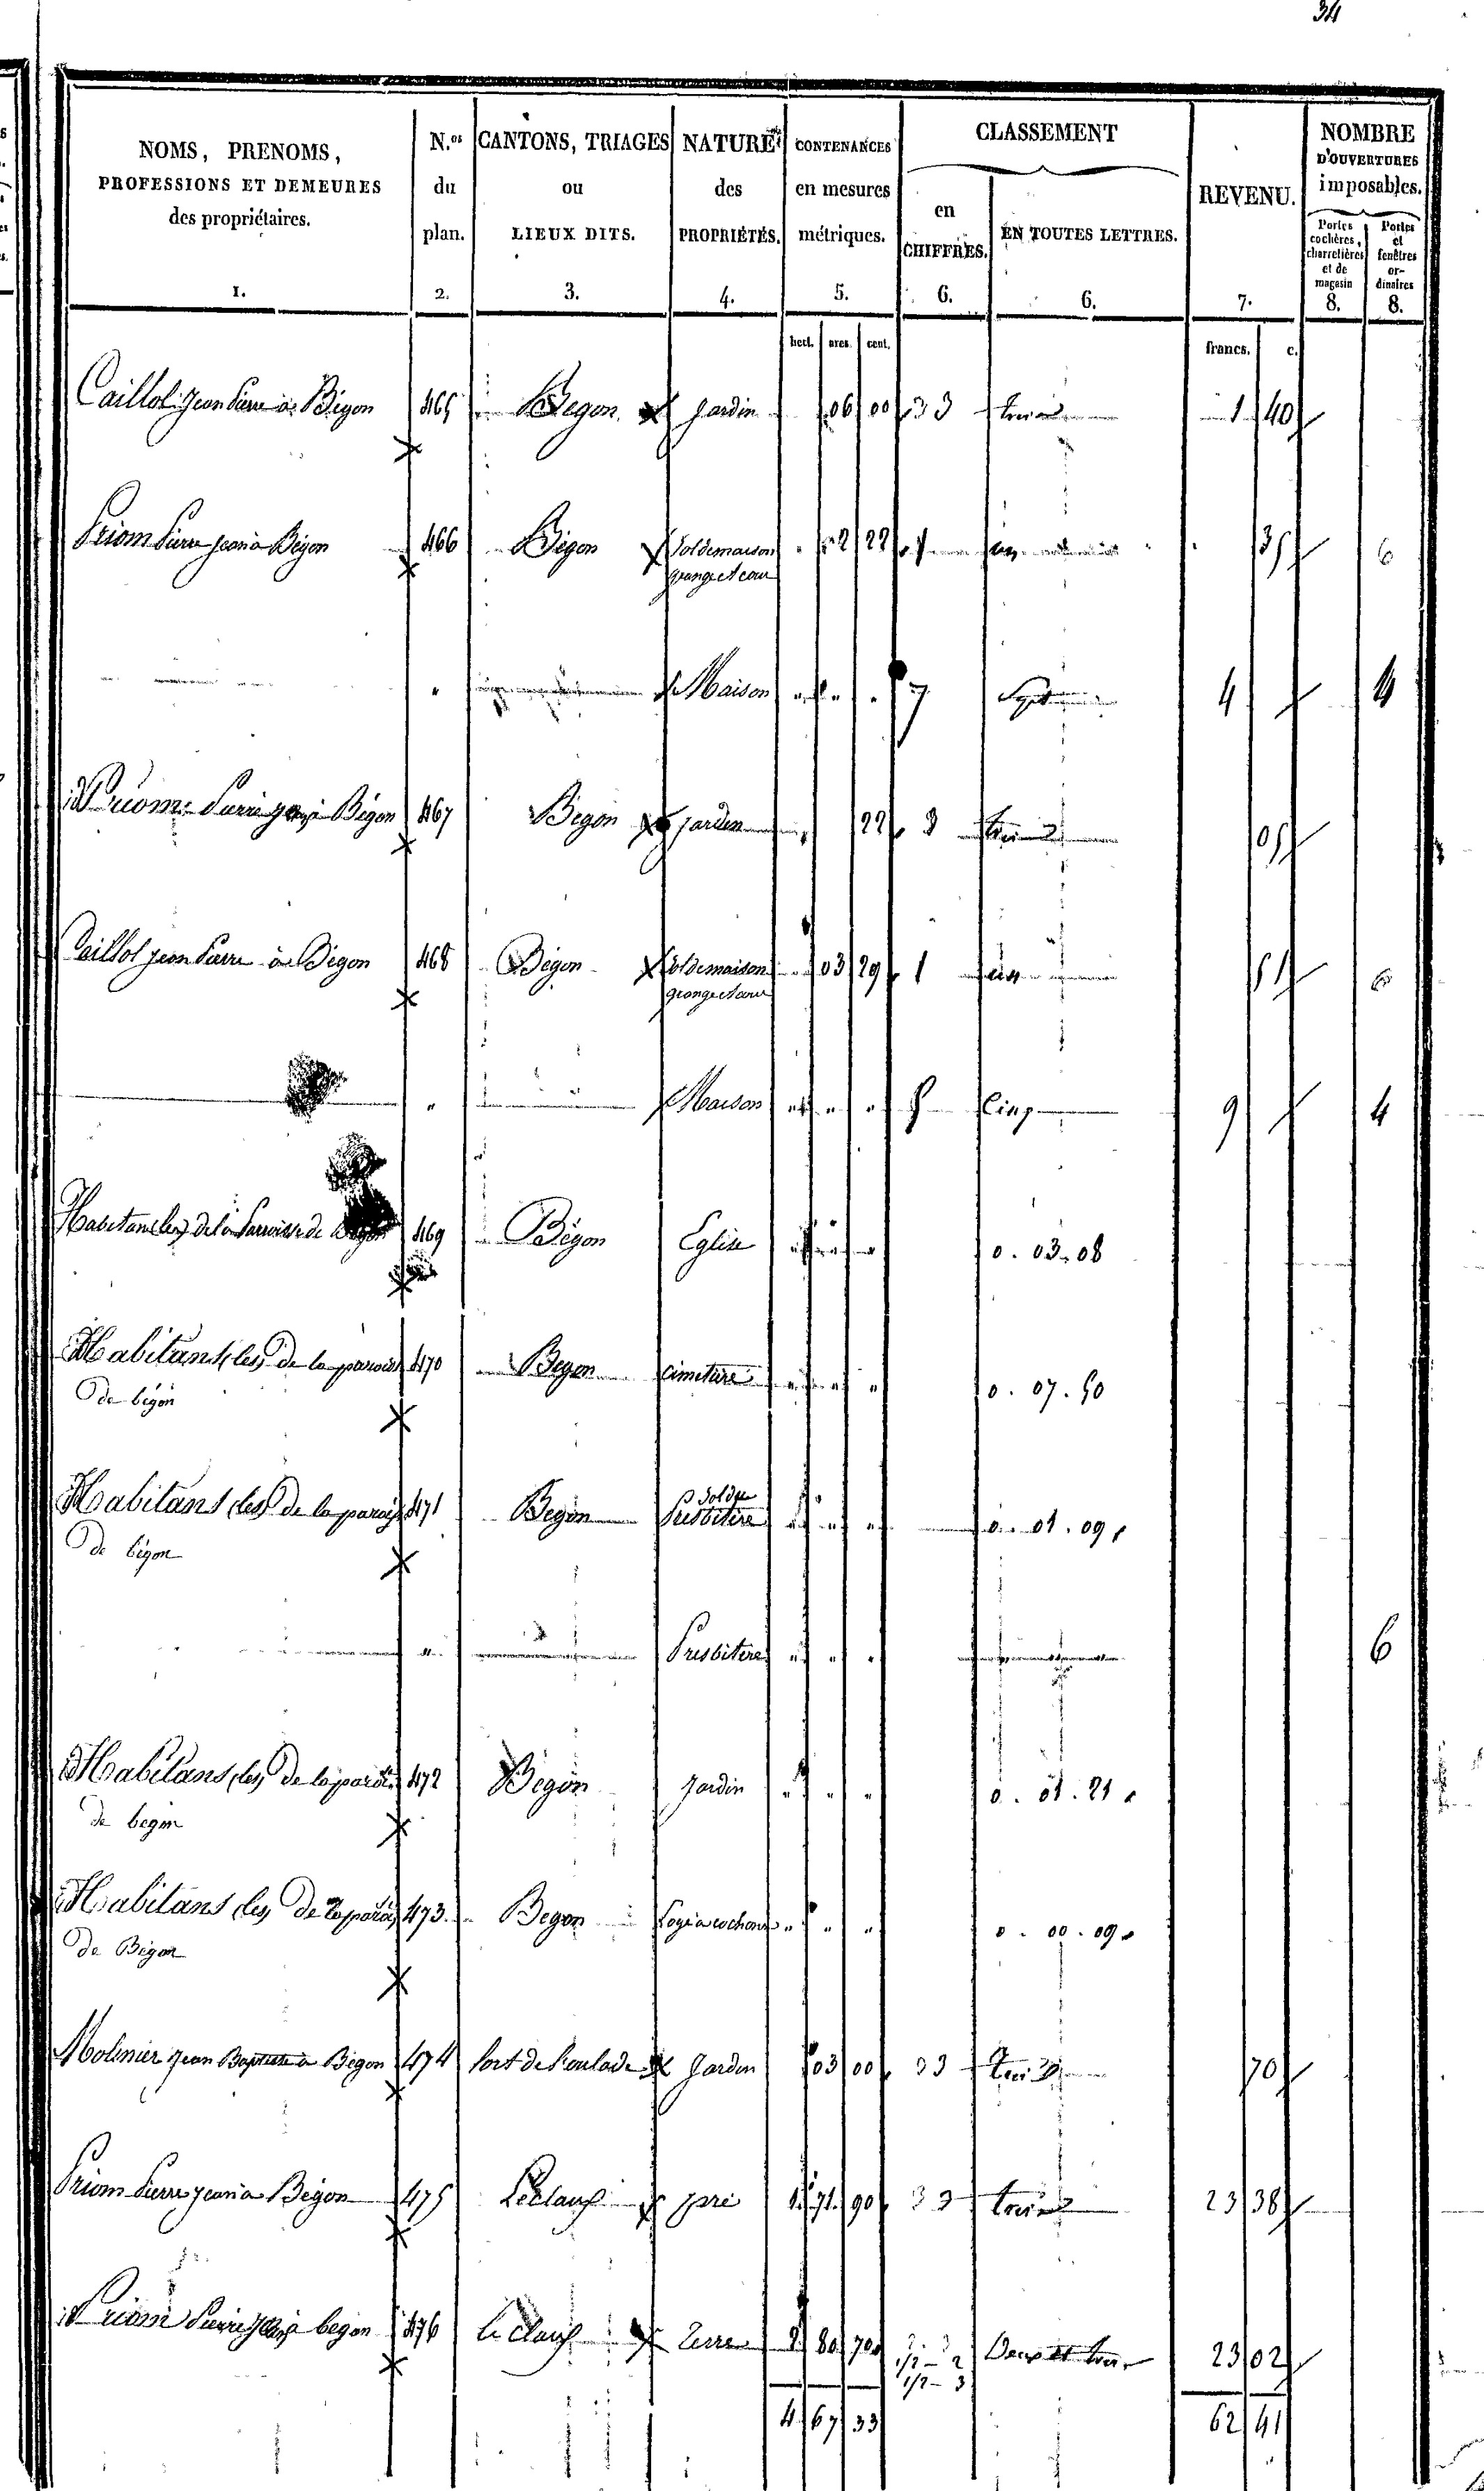 34
NOMS, PRENOMS, PROFESSIONS ET DEMEURES des propriétaires. 1.
N.os du plan. 2.
CANTONS, TRIAGES ou LIEUX DITS. 3.
NATURE des PROPRIÉTÉS. 4.
CONTENANCES en mesures métriques. 5.
CLASSEMENT
en CHIFFRES. 6.
EN TOUTES LETTRES. 6.
REVENU. 7.
NOMBRE D'OUVERTURES imposables.
Portes cochères, charretières et de magasin 8.
Portes et fenêtres ordinaires 8.
hect. ares. cent. francs. c.
Caillol Jean Pierre à Bégon 465 Begon Jardin 06 00 3 3 trois 1 40
Priom Pierre Jean à Bégon 466 Bégon Sol de maison 2 22 1 un 35 6
grange et cour
" Maison " " " 7 Sept 4 4
Priom Pierre Jean à Bégon 467 Begon Jardin 22 3 trois 05
Caillol Jean Pierre à Bégon 468 Bégon Sol de maison 03 29 1 un 51 6
grange et cour
" Maison " " " 5 Cinq 9 4
Habitans (les) de la Paroisse de Bégon 469 Bégon Eglise " " " 0. 03. 08
Habitans (les) de la paroisse 470 Begon cimetière " " " 0. 07. 50
de bégon
Habitans (les) de la parois 471 Begon Sol du Presbitère " " " 0. 01. 09
de bégon
" Presbitère " " " 6
Habitans (les) de la parois 472 Begon Jardin " " " 0. 01. 21
de begon
Habitans (les) de la parois 473 Begon Loge à cochons " " " 0. 00. 09
de Bégon
Molinier Jean Baptiste à Bégon 474 Jardin 03 00 3 3 trois 70
Priom Pierre Jean à Bégon 475 Le claux pré 1 71 90 3 3 trois 23 38
Priom Pierre Jean à begon 476 Le claux Terre 2 80 70 2. 3 Deux et trois 23 02
1/2 - 2
1/2 - 3
4 67 33 62 41